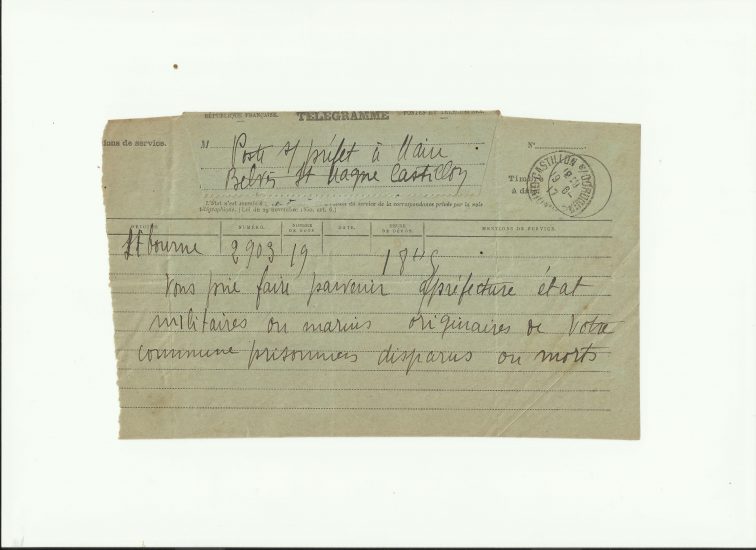 RÉPUBLIQUE FRANÇAISE. TÉLÉGRAMME POSTES ET TÉLÉGRAPHES.
tions de service.
M
Poste s/ préfet à Maire
Belvès St Magne Castillon
N°
Timbre à date
CASTILLON S/ DORDOGNE
L'État n'est soumis à
raison du service de la correspondance privée par la voie
télégraphique. (Loi du 29 novembre 1850, art. 6.)
ORIGINE. NUMÉRO. NOMBRE DE MOTS. DATE. HEURE DE DÉPÔT. MENTIONS DE SERVICE.
Libourne 2903 19 18h5
Vous prie faire parvenir s/préfecture état
militaires ou marins originaires de votre
commune prisonniers disparus ou morts